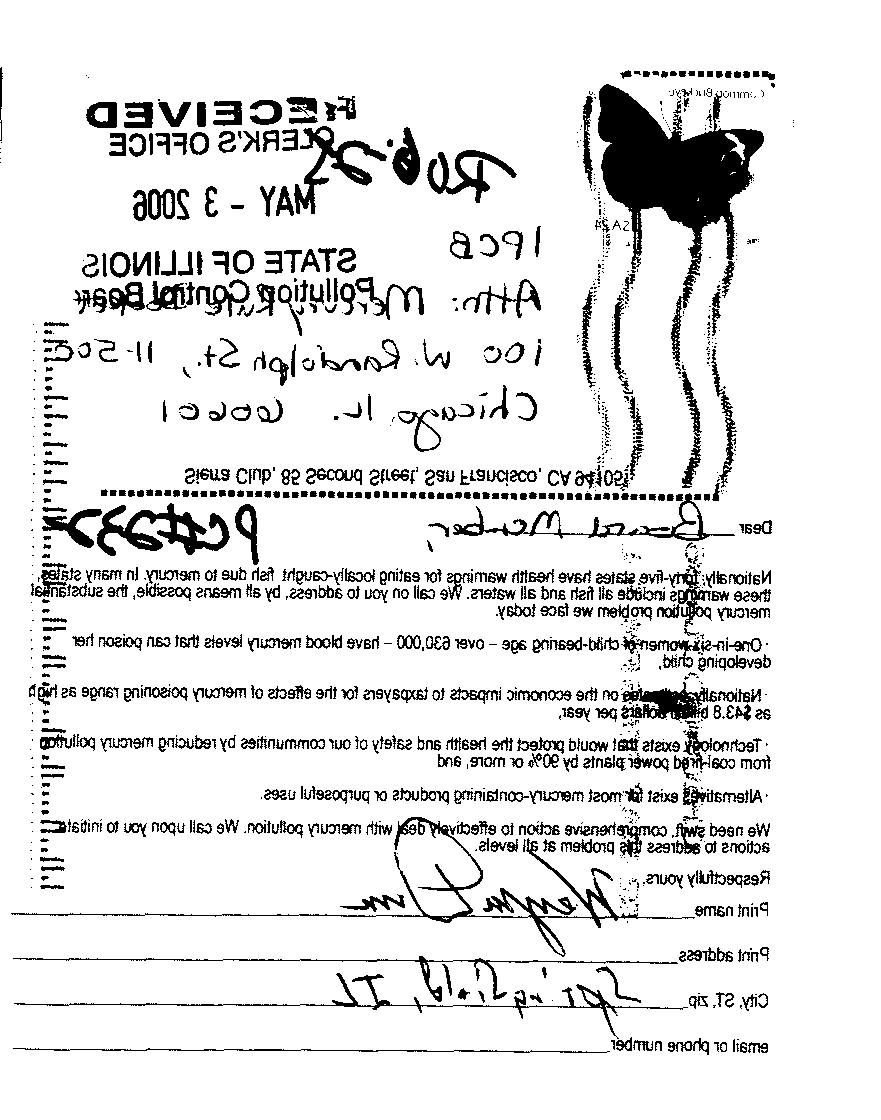 Common Buckeye
RECEIVED
CLERK'S OFFICE
R06-25
MAY - 3 2006
IPCB
STATE OF ILLINOIS
Pollution Control Board
Attn: Mercury Rule Docket
100 W. Randolph St., 11-500
Chicago, IL. 60601
Sierra Club, 85 Second Street, San Francisco, CA 94105
Dear Board Member,
PC#232
Nationally, forty-five states have health warnings for eating locally-caught fish due to mercury. In many states,
these warnings include all fish and all waters. We call on you to address, by all means possible, the substantial
mercury pollution problem we face today.
· One-in-six women of child-bearing age – over 630,000 – have blood mercury levels that can poison her
developing child,
· Nationally, estimates on the economic impacts to taxpayers for the effects of mercury poisoning range as high
as $43.8 billion dollars per year,
· Technology exists that would protect the health and safety of our communities by reducing mercury pollution
from coal-fired power plants by 90% or more, and
· Alternatives exist for most mercury-containing products or purposeful uses.
We need swift, comprehensive action to effectively deal with mercury pollution. We call upon you to initiate
actions to address this problem at all levels.
Respectfully yours,
Print name
Print address
City, ST, zip Springfield, IL
email or phone number